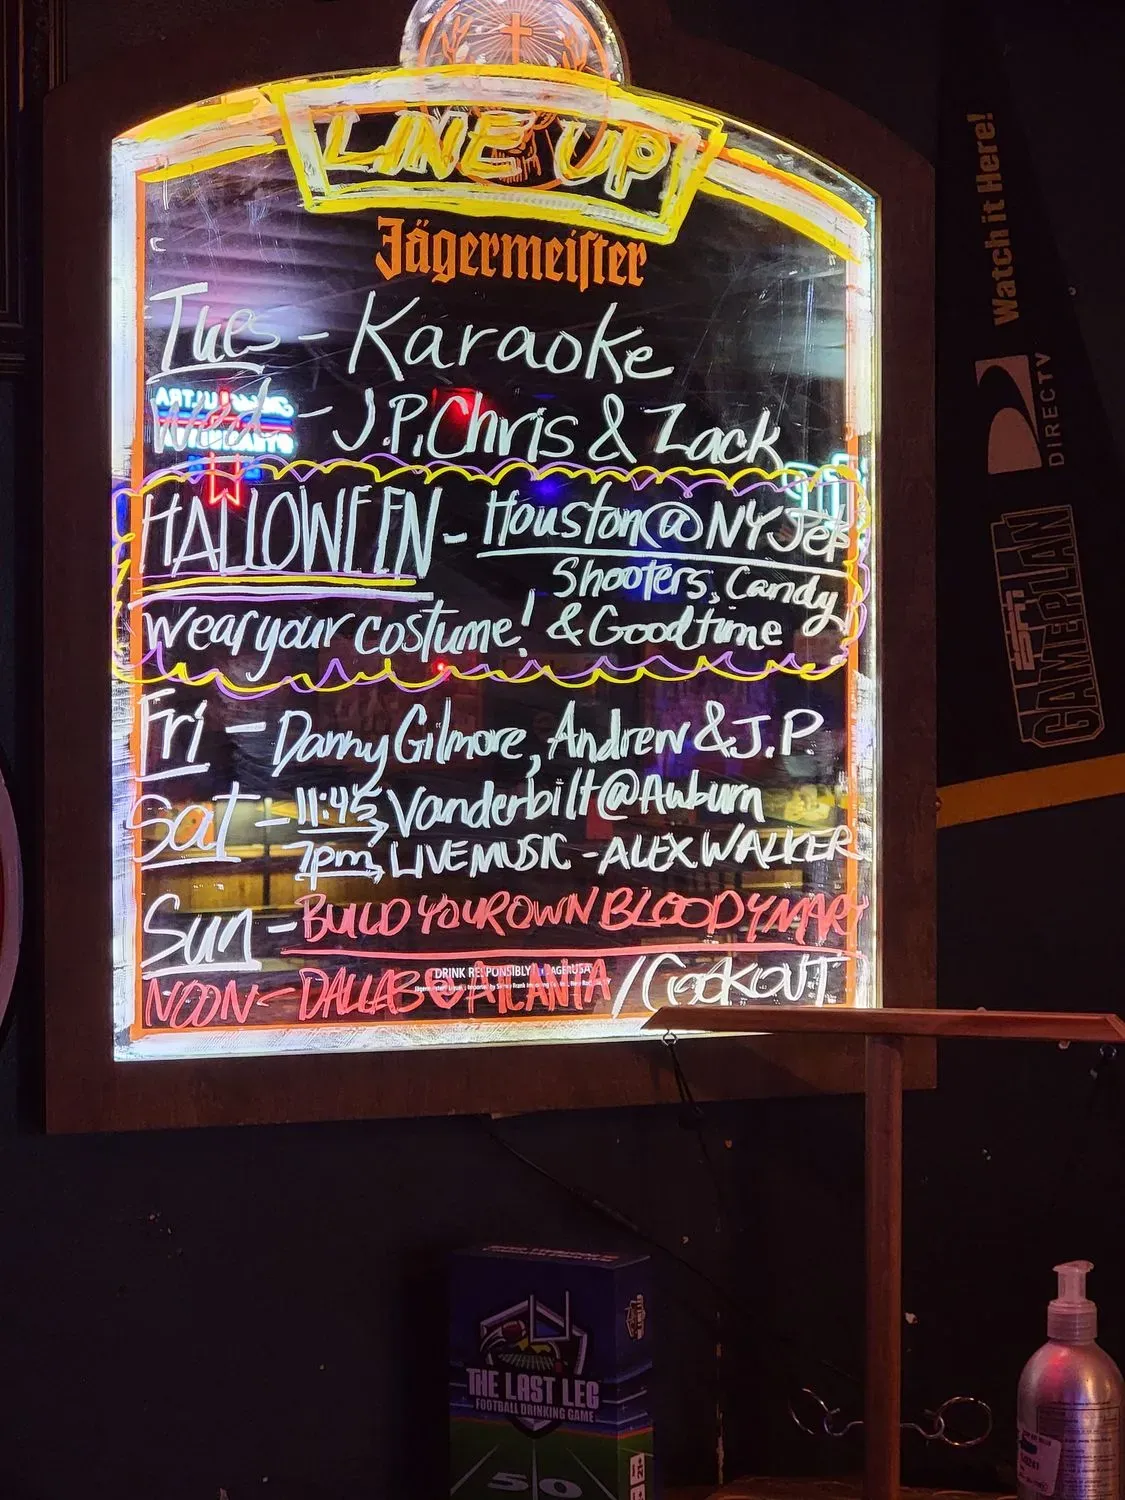 LINE UP
Jägermeister
Tues - Karaoke
Wed - J.P, Chris & Zack
HALLOWEEN - Houston @ NY Jets
Shooters, Candy
wear your costume! & Good time
Fri - Danny Gilmore, Andrew & J.P.
Sat - 11:45, Vanderbilt @ Auburn
7pm, LIVE MUSIC - ALEX WALKER
Sun - BUILD YOUR OWN BLOODY MARY
DRINK RESPONSIBLY
NOON - DALLAS @ ATLANTA / COOKOUT
Watch it Here!
DIRECTV
ESPN
GAMEPLAN
THE LAST LEG
FOOTBALL DRINKING GAME
50
21+